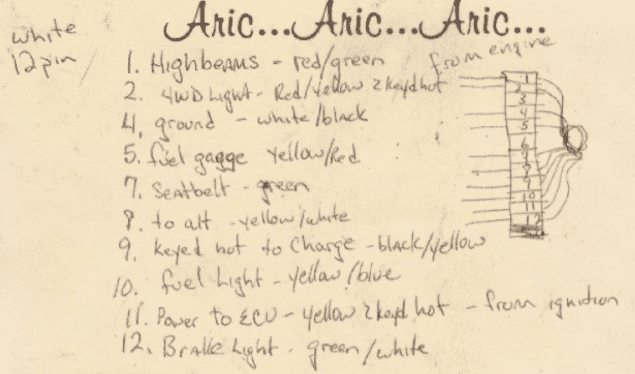 Aric...Aric...Aric...
white
12 pin
from engine
1. Highbeams - red/green
2. 4WD Light - Red/yellow 2 keyd hot
4. ground - white/black
5. fuel gagge yellow/Red
7. Seatbelt - green
8. to alt - yellow/white
9. keyed hot to Charge - black/yellow
10. fuel Light - yellow/blue
11. Power to ECU - yellow 2 keyd hot - from ignition
12. Brake Light - green/white
1
2
3
4
5
6
7
8
9
10
11
12